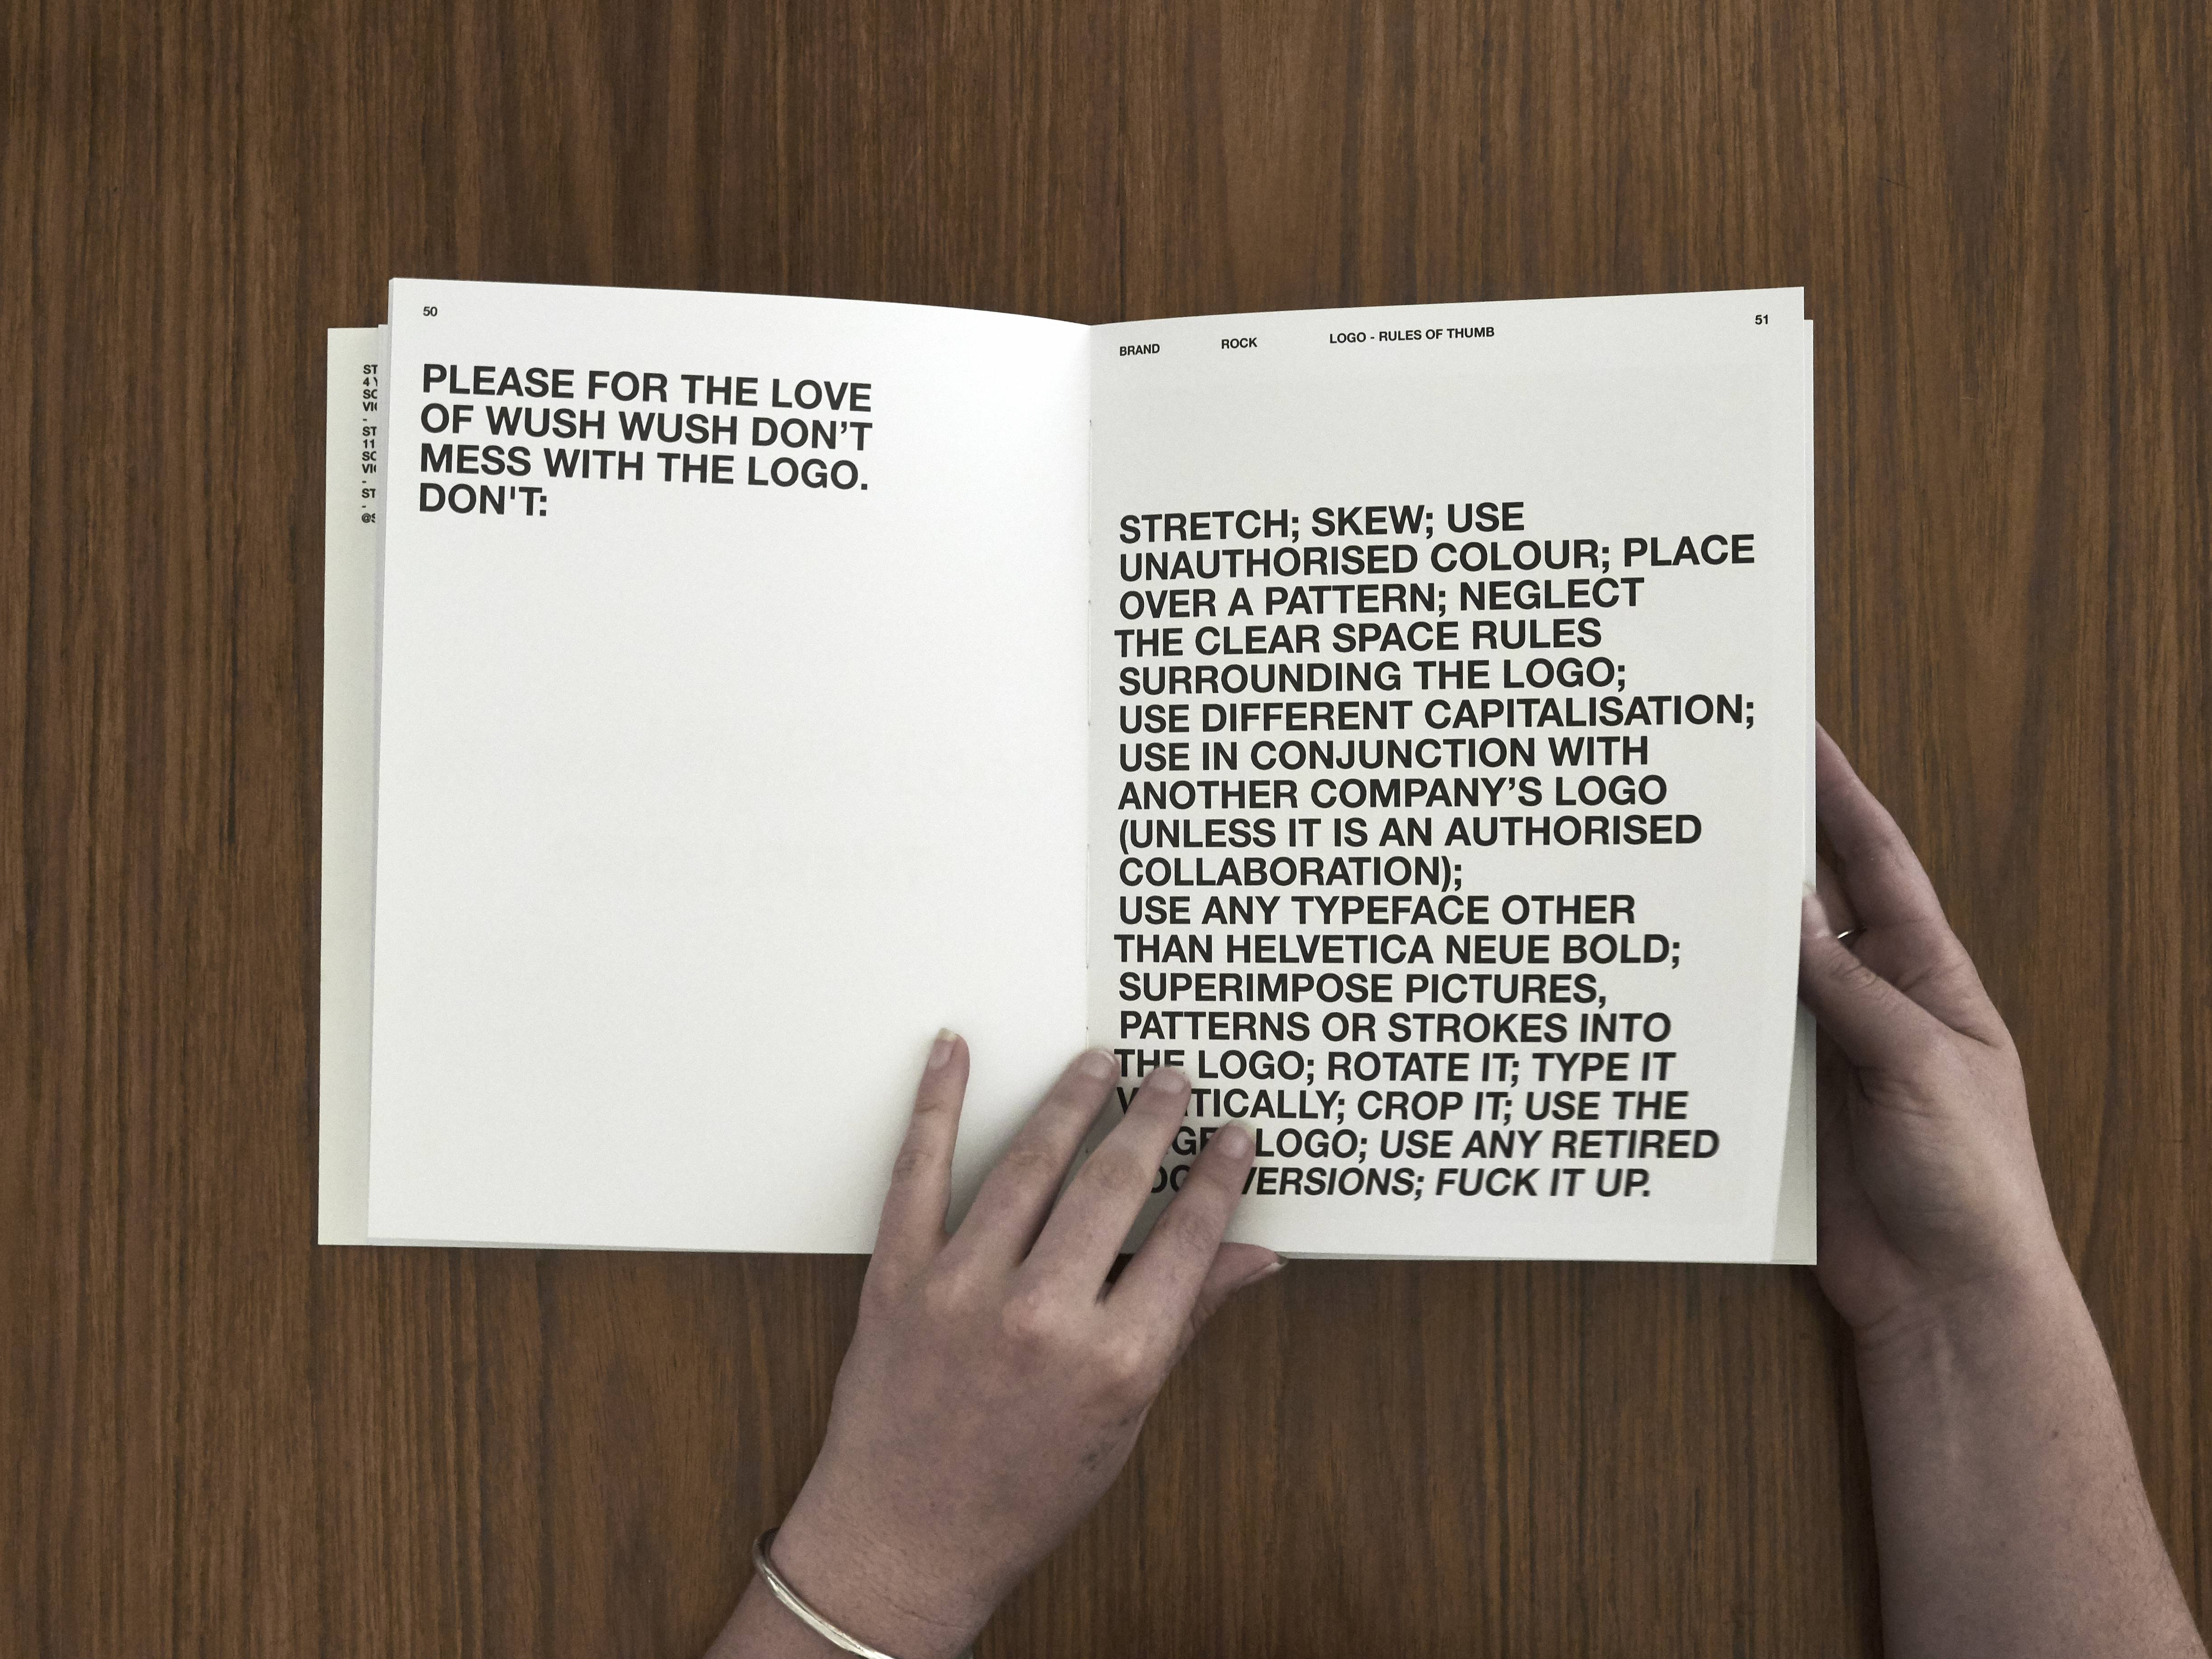 50
PLEASE FOR THE LOVE
OF WUSH WUSH DON’T
MESS WITH THE LOGO.
DON'T:
BRAND ROCK LOGO - RULES OF THUMB 51
STRETCH; SKEW; USE
UNAUTHORISED COLOUR; PLACE
OVER A PATTERN; NEGLECT
THE CLEAR SPACE RULES
SURROUNDING THE LOGO;
USE DIFFERENT CAPITALISATION;
USE IN CONJUNCTION WITH
ANOTHER COMPANY’S LOGO
(UNLESS IT IS AN AUTHORISED
COLLABORATION);
USE ANY TYPEFACE OTHER
THAN HELVETICA NEUE BOLD;
SUPERIMPOSE PICTURES,
PATTERNS OR STROKES INTO
THE LOGO; ROTATE IT; TYPE IT
VERTICALLY; CROP IT; USE THE
LOGO; USE ANY RETIRED
VERSIONS; FUCK IT UP.